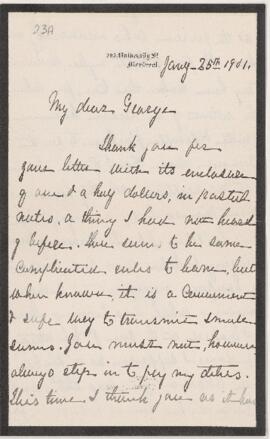 23A
University St.
Montreal.
Jany- 25th 1901.
My dear George
Thank you for
your letter with its enclosure
of one & a half dollars, in postal
notes, a thing I had not heard
of before. There seems to be some
complicated rules to learn, but
when known, it is a convenient
& safe way to transmit small
sums. You must not, however
always step in to pay my debts.
This time I thank you as it has